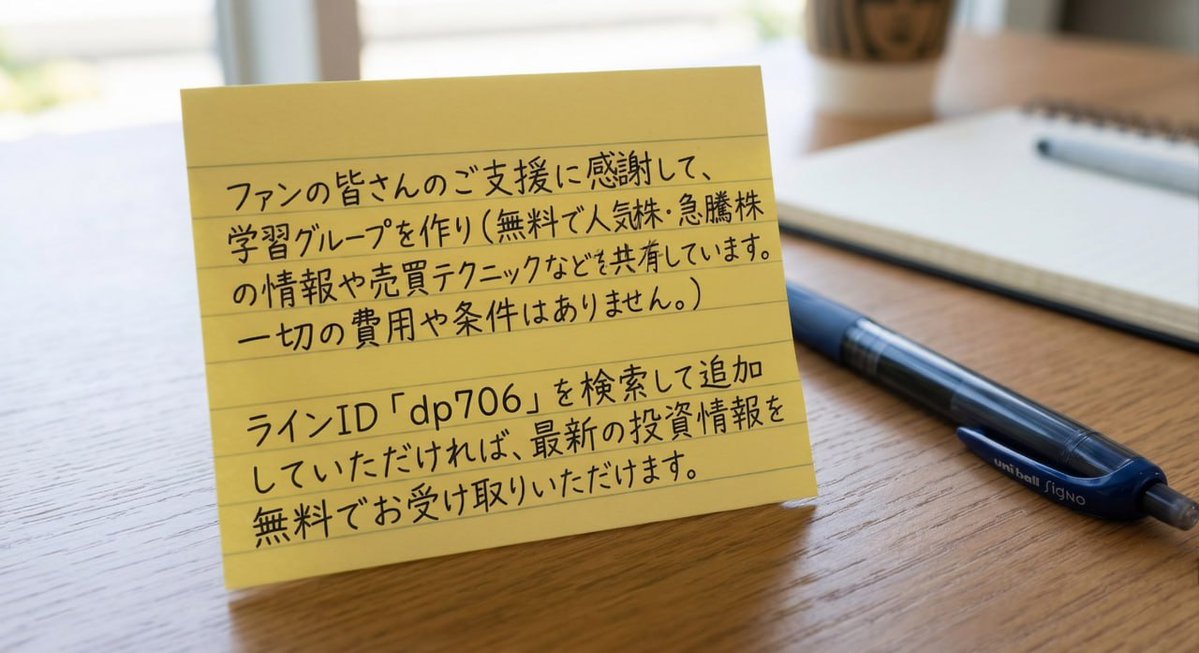 ファンの皆さんのご支援に感謝して、
学習グループを作り(無料で人気株・急騰株
の情報や売買テクニックなどを共有しています。
一切の費用や条件はありません。)
ラインID「dp706」を検索して追加
していただければ、最新の投資情報を
無料でお受け取りいただけます。
uni ball SigNO